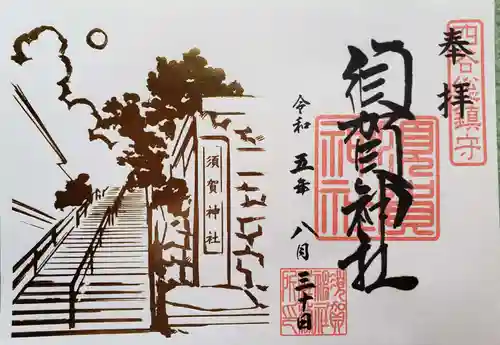 奉拝
四谷總鎮守
須賀神社
須賀神社
令和五年八月三十日
須賀神社